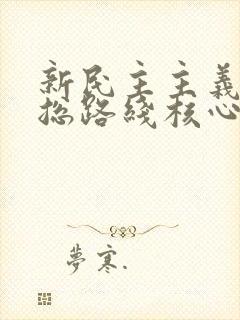 新民主主義
总路綫核心
夢寒.